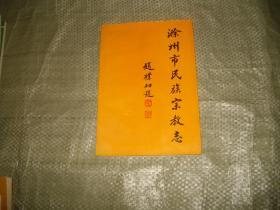 滁州市民族宗教志
赵朴初题